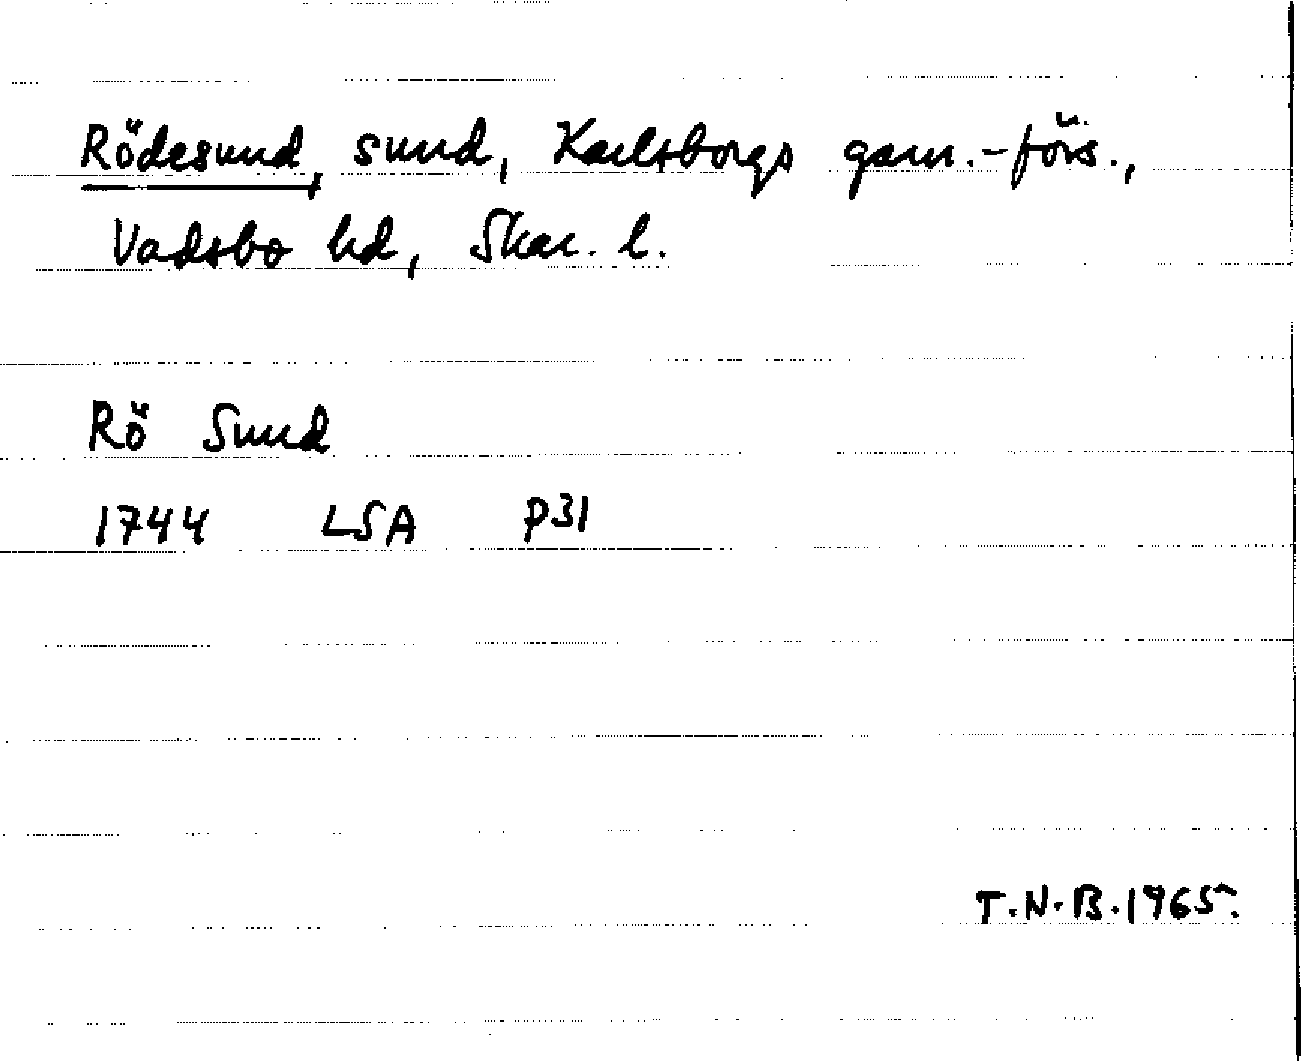 Rödesund, sund, Karlsborgs garn.-förs.,
Vadsbo hd, Skar. l.
Rö Sund
1744 LSA P31
T.N.B. 1965.